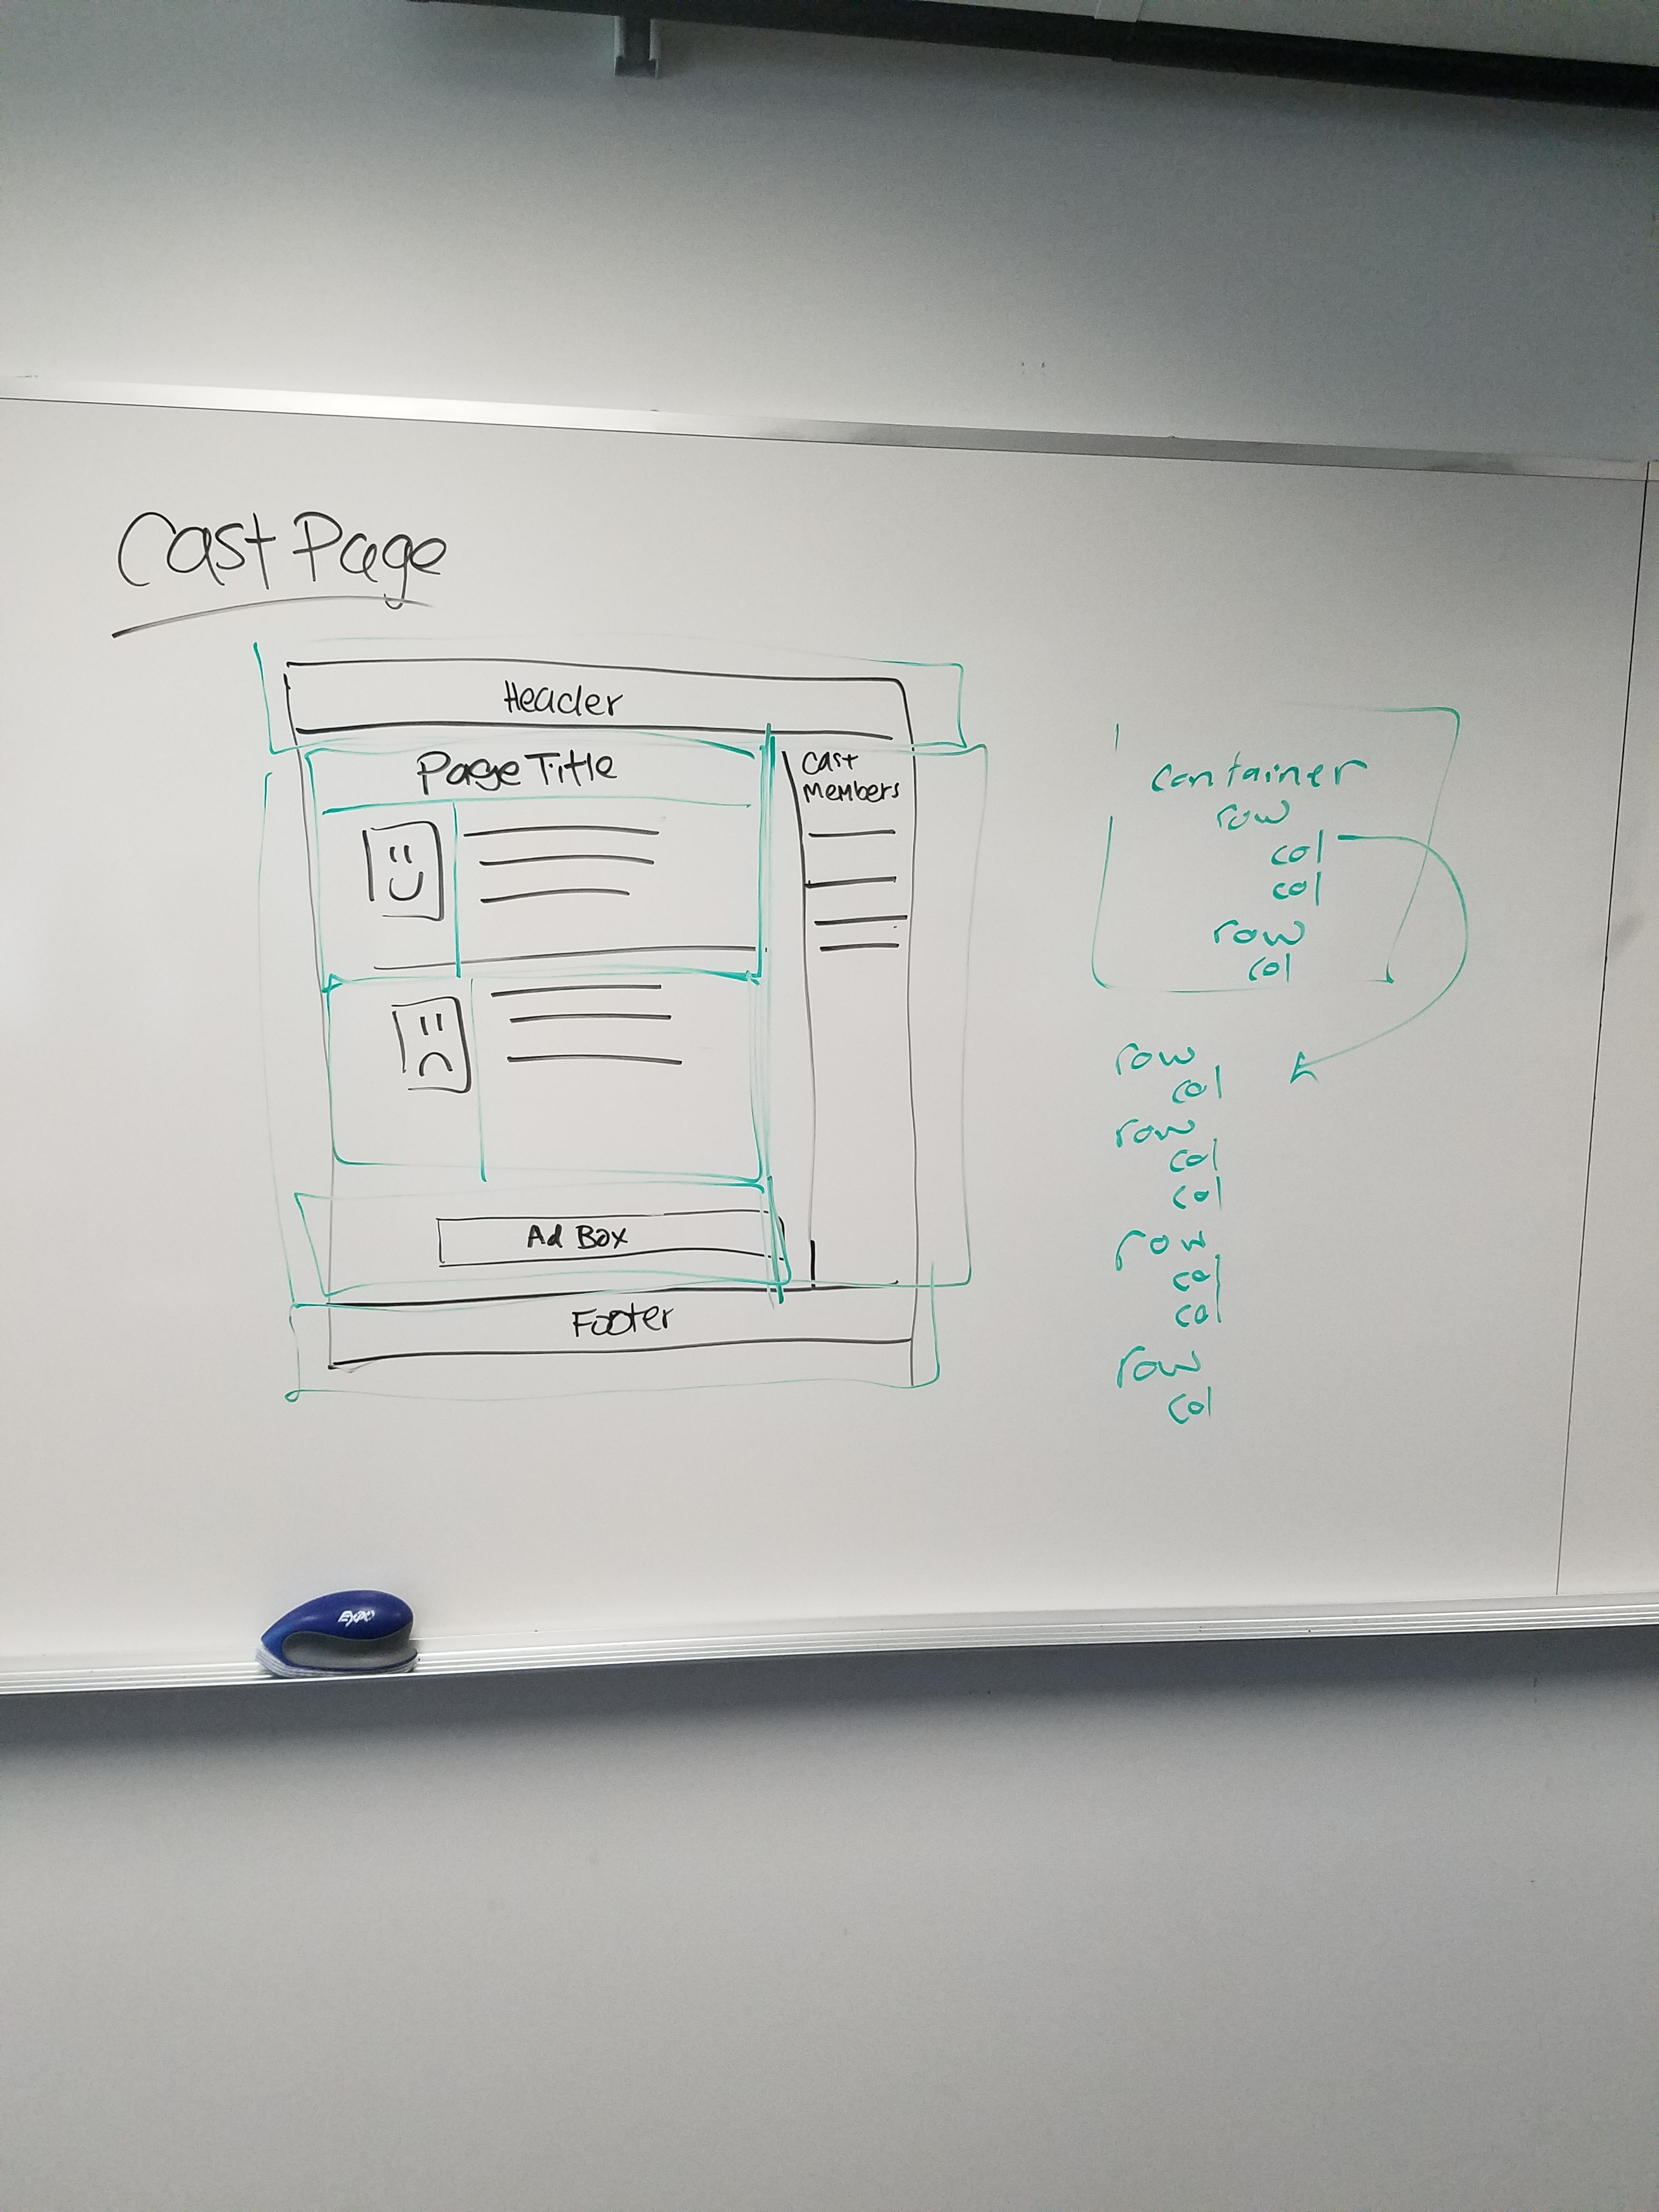 Cast Page
Header
Page Title
Cast
Members
Ad Box
Footer
container
row
col
col
row
col
row
col
row
col
col
row
col
col
row
col
EXPO